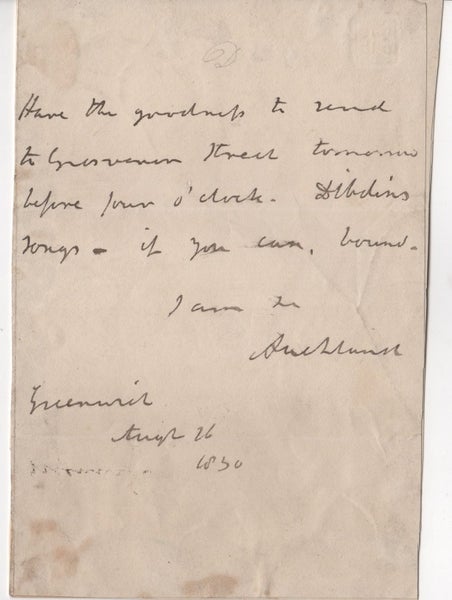 Have the goodness to send
to Grosvenor Street tomorrow
before four o'clock. Dibdins
songs - if you can, bound.
I am
Auckland
Greenwich
Augt 26
1830